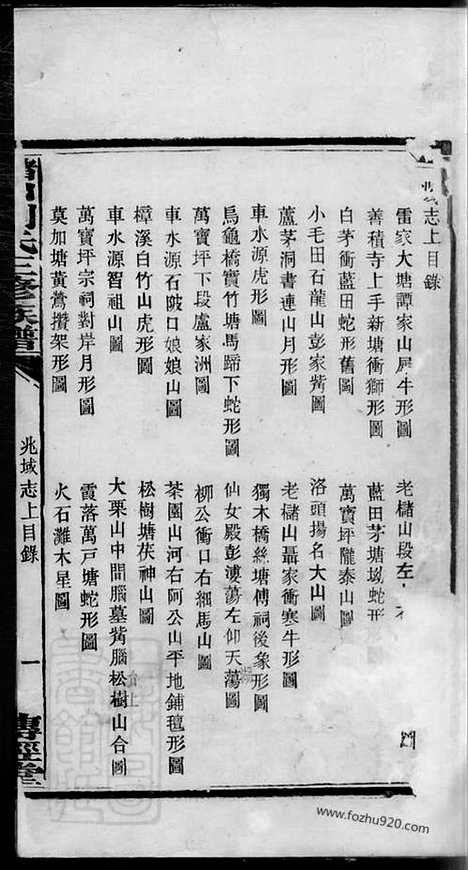 兆域志上目錄
雷家大塘譚家山犀牛形圖
老儲山段左
善積寺上手新塘衝獅形圖
藍田茅塘塝蛇形
白茅衝藍田蛇形舊圖
萬寶坪隴泰山圖
小毛田石龍山彭家觜圖
洛頭揚名大山圖
蘆茅洞書連山月形圖
老儲山聶家衝寒牛形圖
車水源虎形圖
獨木橋絲塘傅祠後象形圖
烏龜橋實竹塘馬蹄下蛇形圖
仙女殿彭漊蕩左仰天蕩圖
萬寶坪下段盧家洲圖
柳公衝口右纲馬山圖
車水源石陂口娘娘山圖
茶園山河右阿公山平地鋪毡形圖
樟溪白竹山虎形圖
松樹塘茯神山圖
車水源智祖山圖
大栗山中間腦墓觜腦松樹山合圖
萬寶坪宗祠對岸月形圖
霞落萬戸塘蛇形圖
莫加塘黃鶯攢架形圖
火石灘木星圖
劉氏三修族譜
兆域志上目錄
一
傳經堂
www.fozhu920.com